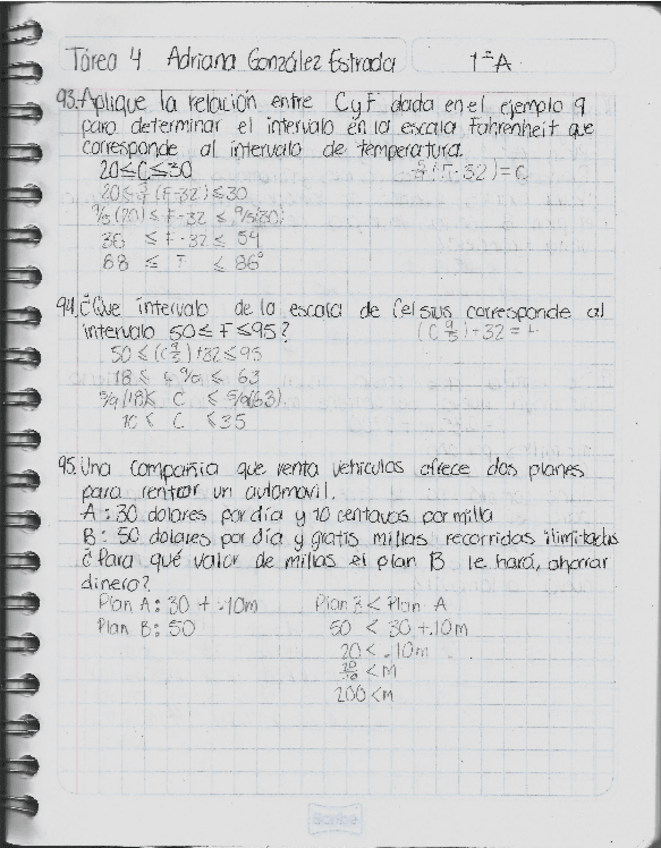 Tarea 4 Adriana González Estrada 1ºA
93. Aplique la relación entre C y F dada en el ejemplo 9
para determinar el intervalo en la escala Fahrenheit que
corresponde al intervalo de temperatura.
20≤C≤30 5/9 (F-32)=C
20≤ 5/9 (F-32)≤30
9/5(20) ≤ F-32 ≤ 9/5(30)
36 ≤ F-32 ≤ 54
68 ≤ F ≤ 86°
94. ¿Que intervalo de la escala de Celsius corresponde al
intervalo 50≤F≤95? (C 9/5)+32=F
50≤(C 9/5)+32≤95
18≤ 9/5 ≤ 63
5/9(18)≤ C ≤5/9(63)
10≤ C ≤35
95. Una compañia que renta vehiculos ofrece dos planes
para rentar un automovil.
A: 30 dolares por día y 10 centavos por milla
B: 50 dolares por día y gratis millas recorridas ilimitadas
¿Para qué valor de millas el plan B le hará, ahorrar
dinero?
Plan A: 30 + .10m Plan B < Plan A
Plan B: 50 50 < 30 + .10m
20 < .10m
20/.10 < M
200 < m
Scribe